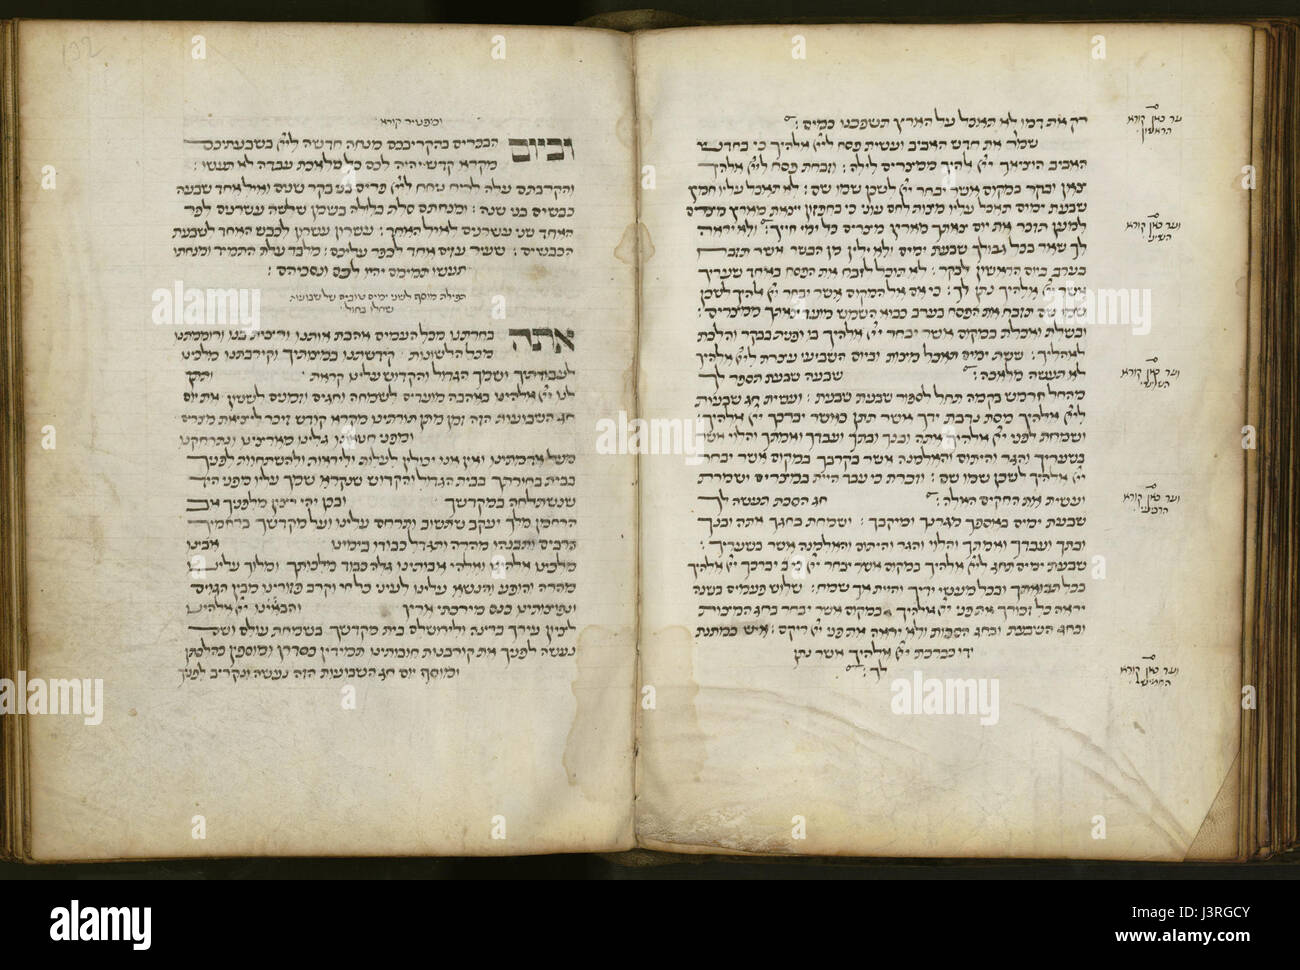 רק את דמו לא תאכל על הארץ תשפכנו כמים :
עד כאן קורא
הראשון
שמור את חדש האביב ועשית פסח ליי אלהיך כי בחדש
האביב הוציאך יי אלהיך ממצרים לילה : וזבחת פסח ליי אלהיך
צאן ובקר במקום אשר יבחר יי לשכן שמו שם : לא תאכל עליו חמץ
שבעת ימים תאכל עליו מצות לחם עוני כי בחפזון יצאת מארץ מצרים
למען תזכר את יום צאתך מארץ מצרים כל ימי חייך : ולא יראה
עד כאן קורא
השיני
לך שאר בכל גבולך שבעת ימים ולא ילין מן הבשר אשר תזבח
בערב ביום הראשון לבקר : לא תוכל לזבח את הפסח באחד שעריך
אשר יי אלהיך נתן לך : כי אם אל המקום אשר יבחר יי אלהיך לשכן
שמו שם תזבח את הפסח בערב כבוא השמש מועד צאתך ממצרים :
ובשלת ואכלת במקום אשר יבחר יי אלהיך בו ופנית בבקר והלכת
לאהליך : ששת ימים תאכל מצות וביום השביעי עצרת ליי אלהיך
לא תעשה מלאכה : שבעה שבעת תספר לך
עד כאן קורא
השלישי
מהחל חרמש בקמה תחל לספור שבעת שבעת : ועשית חג שבעות
ליי אלהיך מסת נדבת ידך אשר תתן כאשר יברכך יי אלהיך :
ושמחת לפני יי אלהיך אתה ובנך ובתך ועבדך ואמתך והלוי אשר
בשעריך והגר והיתום והאלמנה אשר בקרבך במקום אשר יבחר
יי אלהיך לשכן שמו שם : וזכרת כי עבד היית במצרים ושמרת
ועשית את החקים האלה : חג הסכת תעשה לך
עד כאן קורא
הרביעי
שבעת ימים באספך מגרנך ומיקבך : ושמחת בחגך אתה ובנך
ובתך ועבדך ואמתך והלוי והגר והיתום והאלמנה אשר בשעריך :
שבעת ימים תחג ליי אלהיך במקום אשר יבחר יי כי יברכך יי אלהיך
בכל תבואתך ובכל מעשי ידיך והיית אך שמח : שלוש פעמים בשנה
יראה כל זכורך את פני יי אלהיך במקום אשר יבחר בחג המצות
ובחג השבעות ובחג הסכות ולא יראה את פני יי ריקם : איש כמתנת
ידו כברכת יי אלהיך אשר נתן
לך :
עד כאן קורא
החמישי
132
ומפטיר קורא
וביום הבכרים בהקריבכם מנחה חדשה ליי בשבעתיכם
מקרא קדש יהיה לכם כל מלאכת עבדה לא תעשו :
והקרבתם עלה לריח ניחח ליי פרים בני בקר שנים ואיל אחד שבעה
כבשים בני שנה : ומנחתם סלת בלולה בשמן שלשה עשרנים לפר
האחד שני עשרנים לאיל האחד : עשרון עשרון לכבש האחד לשבעת
הכבשים : שעיר עזים אחד לכפר עליכם : מלבד עלת התמיד ומנחתו
תעשו תמימם יהיו לכם ונסכיהם :
תפילה מוסף לשני ימים טובים של שבועות
שחלו בחול
אתה בחרתנו מכל העמים אהבת אותנו ורצית בנו ורוממתנו
מכל הלשונות קידשתנו במצותיך וקירבתנו מלכינו
לעבודתיך ושמך הגדול והקדוש עלינו קראת ותתן
לנו יי אלהינו באהבה מועדים לשמחה וחגים וזמנים לששון את יום
חג השבועות הזה זמן מתן תורתינו מקרא קודש זיכר ליציאת מצרים
ומפני חטאינו גלינו מארצינו ונתרחקנו
מעל אדמתינו ואין אנו יכולין לעלות וליראות ולהשתחוות לפניך
בבית בחירתך בבית הגדול והקדוש שנקרא שמך עליו מפני היד
שנשתלחה במקדשך ובכן יהי רצון מלפניך אב
הרחמן מלך יעקב שתשוב ותרחם עלינו ועל מקדשך ברחמיך
הרבים ותבנהו מהרה ותגדל כבודו בימינו אבינו
מלכינו אלהינו ואלהי אבותינו גלה כבוד מלכותך ומלוך עלינו
מהרה והופע והנשא עלינו לעיני כל חי וקרב פזורינו מבין הגוים
ונפוצותינו כנס מירכתי ארץ והביאינו יי אלהינו
לציון עירך ברינה ולירושלם בית מקדשך בשמחת עולם ושם
נעשה לפניך את קורבנות חובותינו תמידין כסדרן ומוספין כהלכתן
ומוסף יום חג השבועות הזה נעשה ונקריב לפניך
alamy stock photo
J3RGCY
www.alamy.com